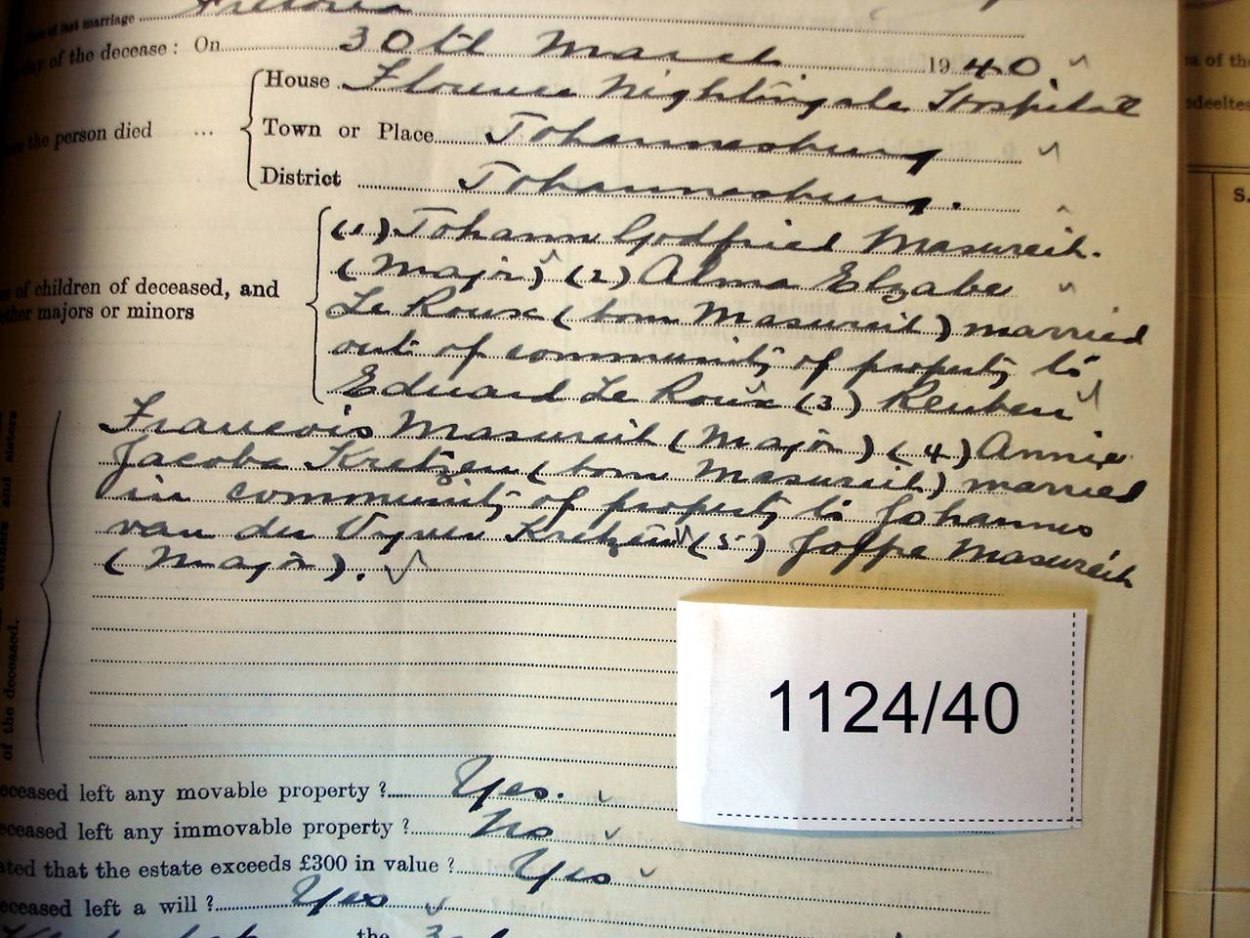 of last marriage Pretoria
day of the decease: On 30th March 1940.
House Florence Nightingale Hospital
the person died ... Town or Place Johannesburg
District Johannesburg.
(1) Johann Godfried Masureik.
(Major) (2) Alma Elzabe
of children of deceased, and
Le Roux (born Masureik) married
whether majors or minors
out of community of property to
Eduard Le Roux (3) Reuben
Francois Masureik (Major) (4) Annie
Jacoba Kretzen (born Masureik) married
in community of property to Johannes
van der Vyver Kretzen (5) Joffre Masureik
(Major).
of the deceased.
1124/40
deceased left any movable property? Yes.
deceased left any immovable property? No
stated that the estate exceeds £300 in value? Yes
deceased left a will? Yes
the 3rd
of the
S.